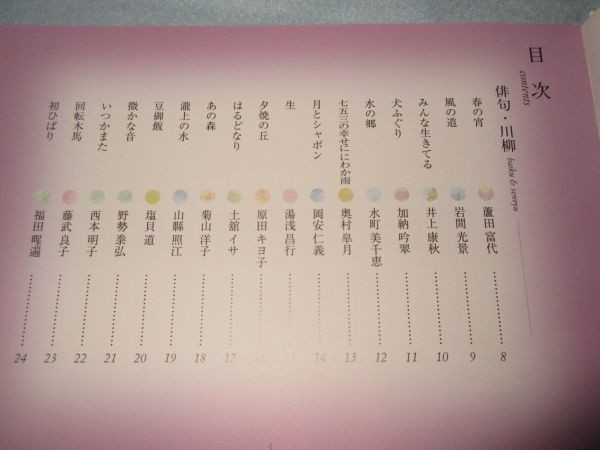 目次
contents
俳句・川柳 haiku & senryu
春の宵 蘆田 富代 8
風の道 岩間 光景 9
みんな生きてる 井上 康秋 10
犬ふぐり 加納 吟翠 11
水の郷 水町 美千恵 12
七五三の幸せににわか雨 奥村 皐月 13
月とシャボン 岡安 仁義 14
生 湯浅 昌行
夕焼の丘 原田 キヨ子 16
はるどなり 土舘 イサ 17
あの森 菊山 洋子 18
瀧上の水 山縣 照江 19
豆御飯 塩貝 道 20
微かな音 野勢 泰弘 21
いつかまた 西本 明子 22
回転木馬 藤武 良子 23
初ひばり 福田 曜遍 24